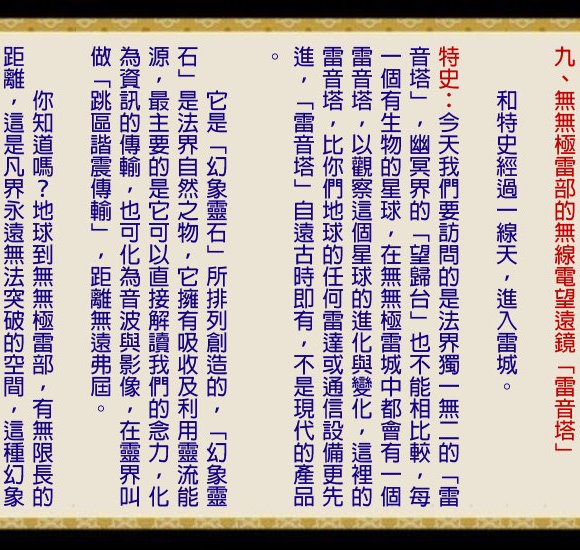 九、無無極雷部的無線電望遠鏡「雷音塔」
和特史經過一線天，進入雷城。
特史：今天我們要訪問的是法界獨一無二的「雷
音塔」，幽冥界的「望歸台」也不能相比較，每
一個有生物的星球，在無無極雷城中都會有一個
雷音塔，以觀察這個星球的進化與變化，這裡的
雷音塔，比你們地球的任何雷達或通信設備更先
進，「雷音塔」自遠古時即有，不是現代的產品
。
它是「幻象靈石」所排列創造的，「幻象靈
石」是法界自然之物，它擁有吸收及利用靈流能
源，最主要的是它可以直接解讀我們的念力，化
為資訊的傳輸，也可化為音波與影像，在靈界叫
做「跳區諧震傳輸」，距離無遠弗屆。
你知道嗎？地球到無無極雷部，有無限長的
距離，這是凡界永遠無法突破的空間，這種幻象